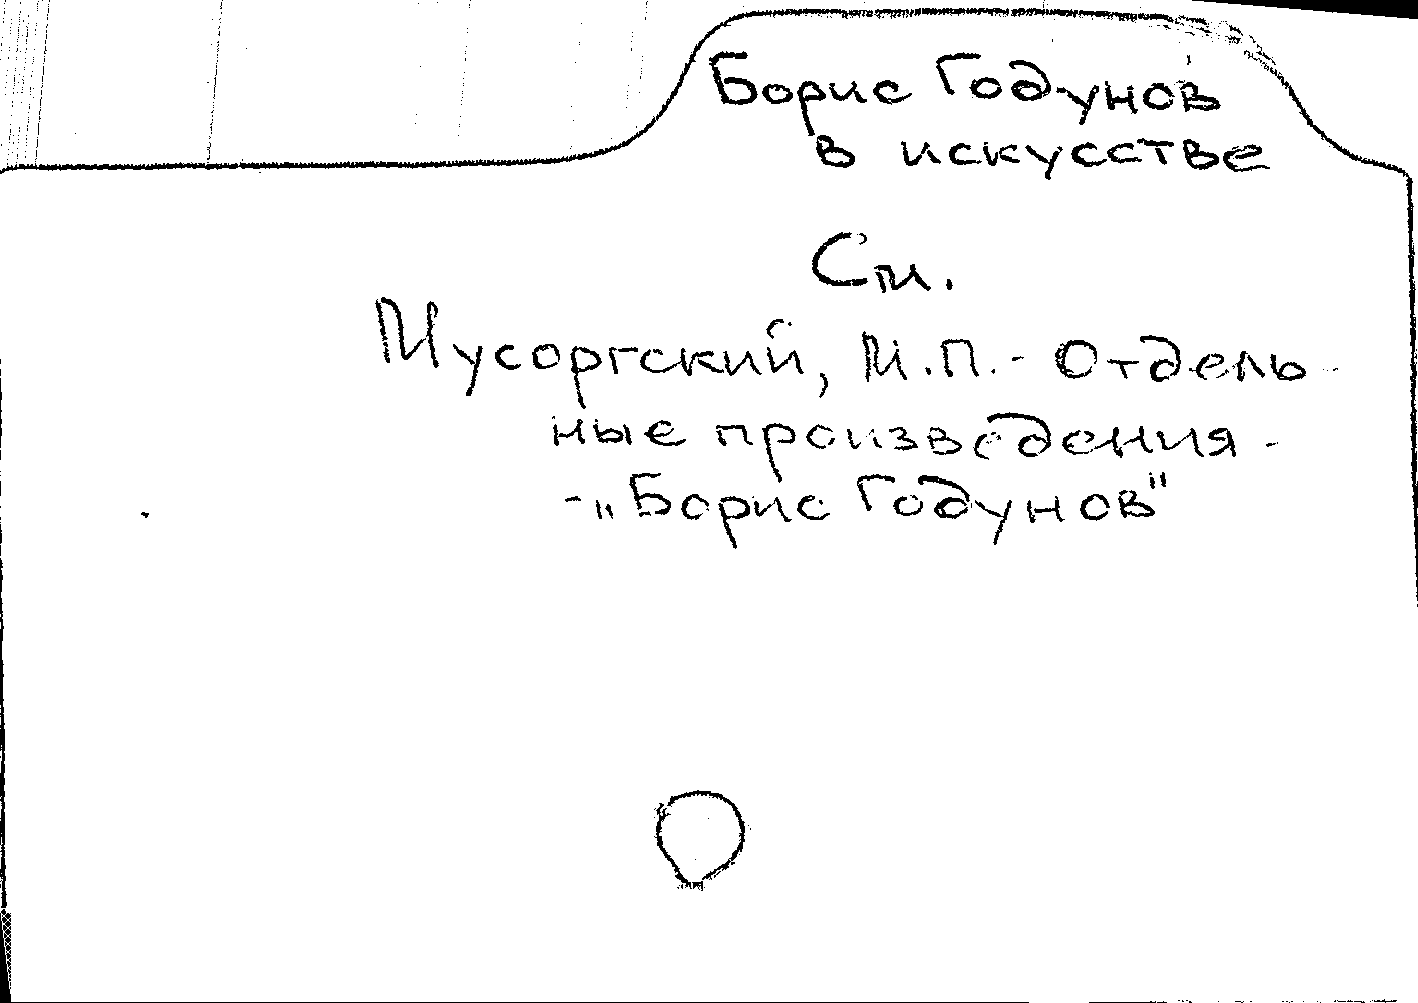 Борис Годунов
в искусстве
См.
Мусоргский, М.П. - Отдель-
ные произведения -
- „Борис Годунов"